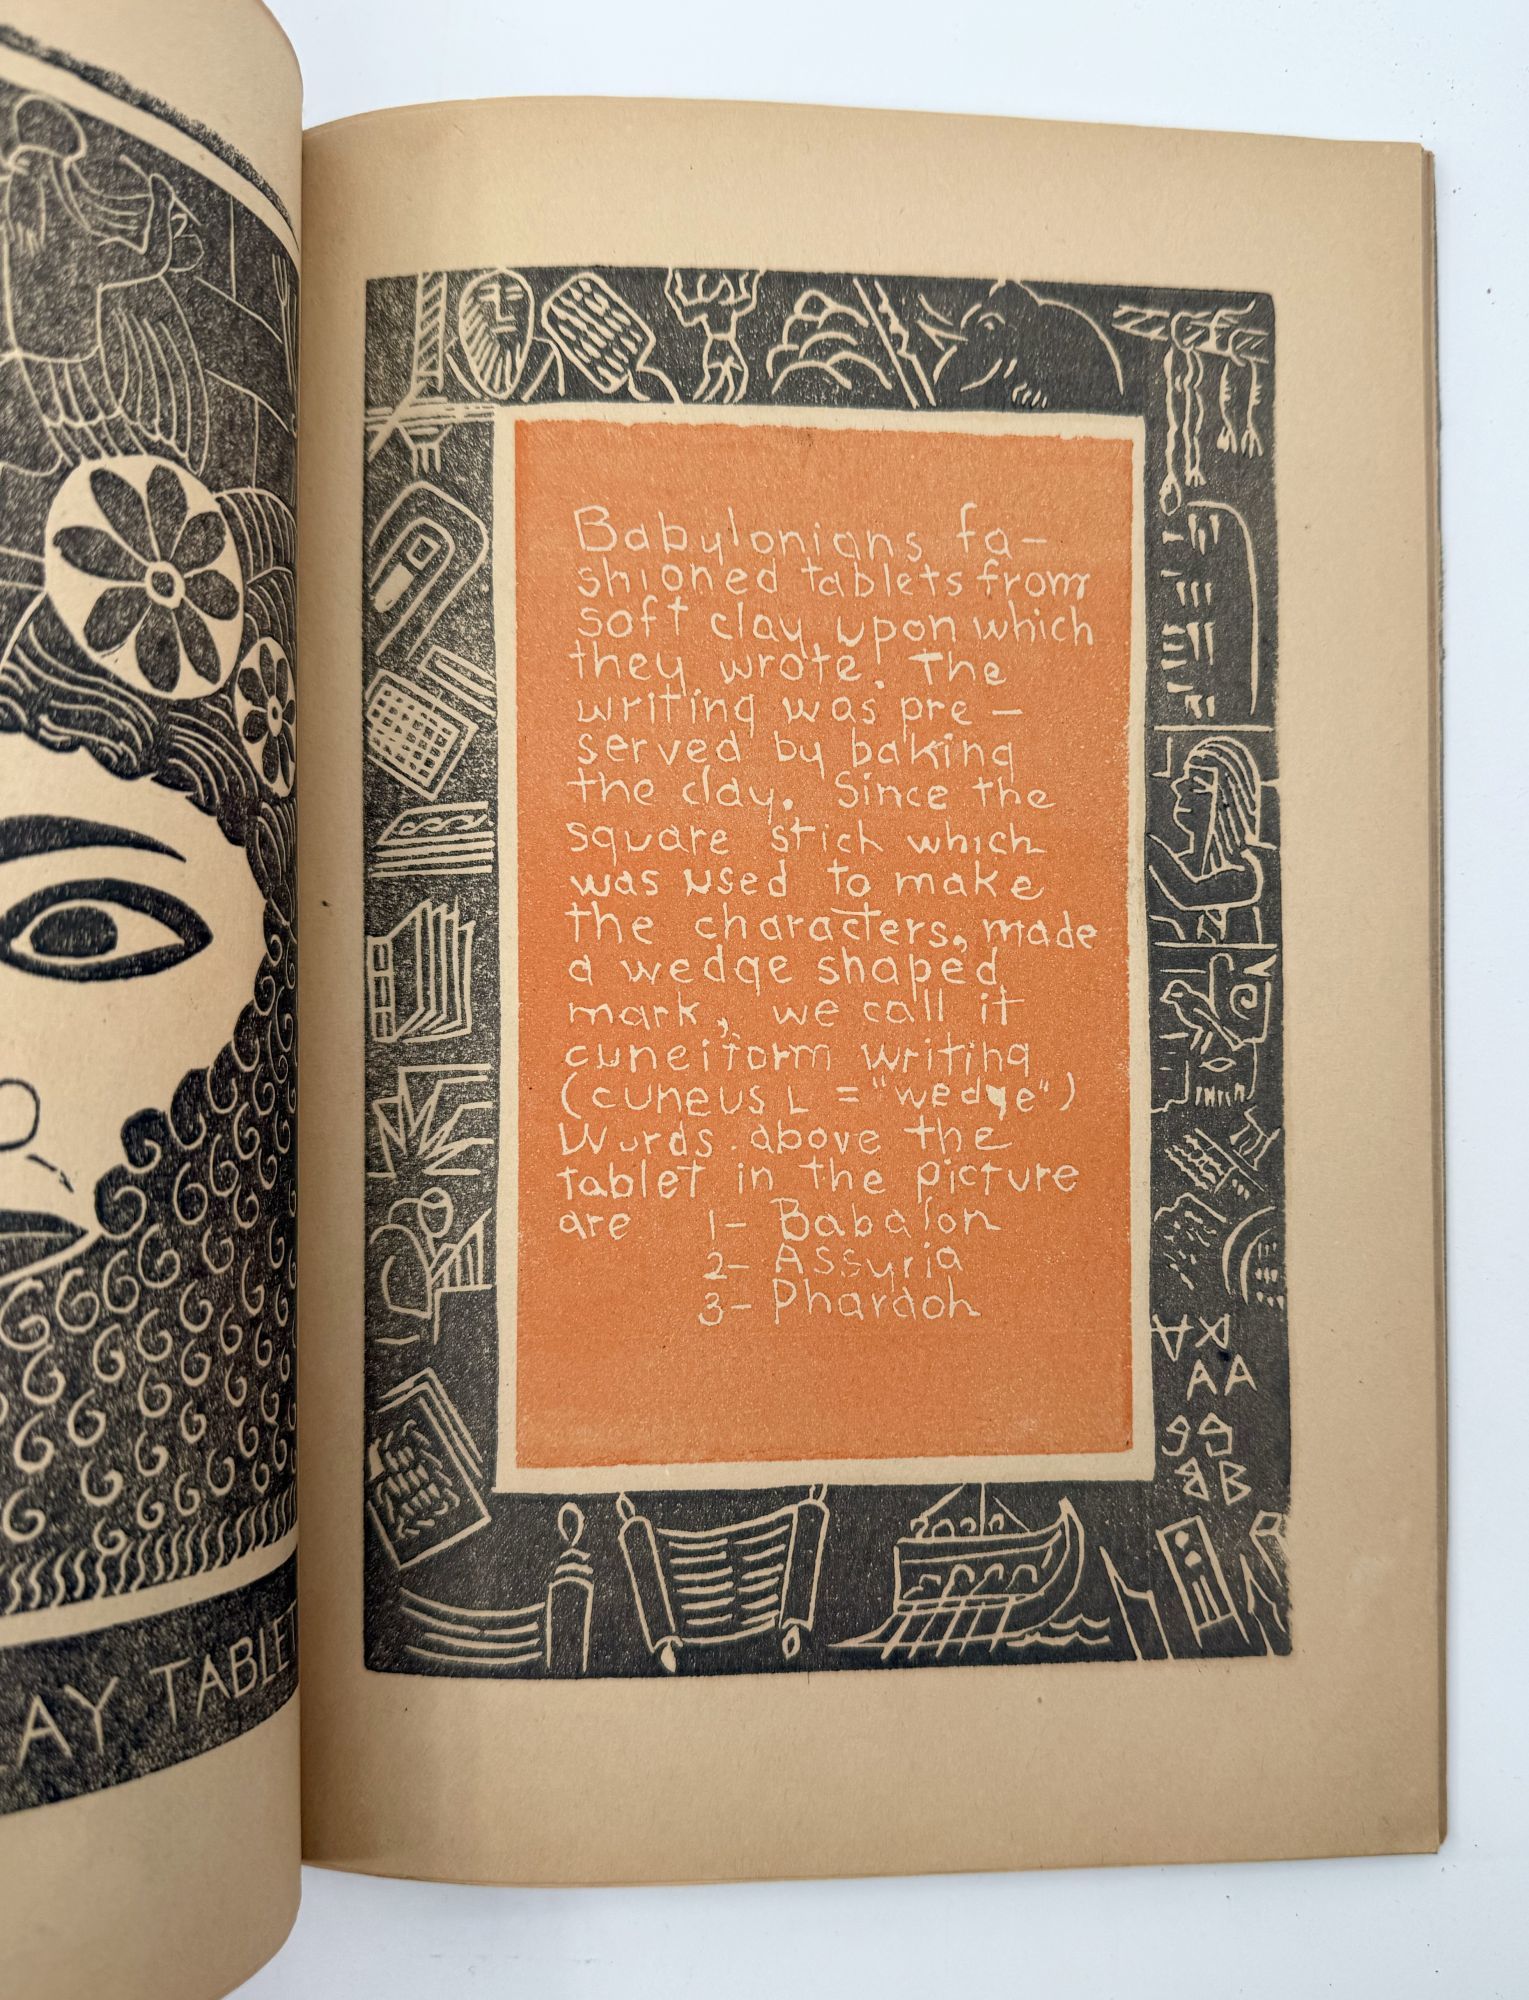 AY TABLET
Babylonians fa-
shioned tablets from
soft clay upon which
they wrote. The
writing was pre-
served by baking
the clay. Since the
square stick which
was used to make
the characters, made
a wedge shaped
mark, we call it
cuneiform writing
(cuneus L = "wedge")
Words above the
tablet in the picture
are 1- Babalon
2- Assyria
3- Pharaoh